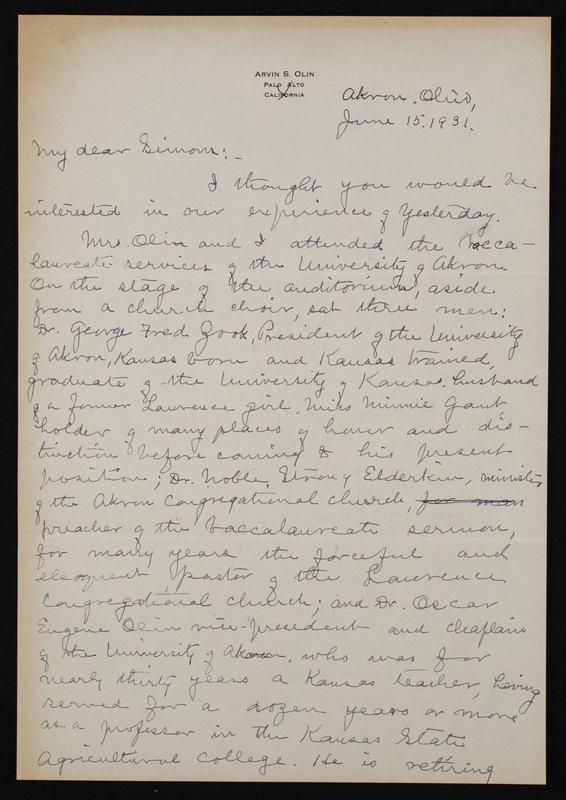 ARVIN S. OLIN
PALO ALTO
CALIFORNIA
Akron, Ohio,
June 15, 1931.
My dear Simons:-
I thought you would be
interested in our experience of yesterday.
Mrs. Olin and I attended the bacca-
laureate services of the University of Akron.
On the stage of the auditorium, aside
from a church choir, sat three men:
Dr. George Fred Zook, President of the University
of Akron, Kansas born and Kansas trained,
graduate of the University of Kansas, husband
of a former Lawrence girl, Miss Minnie Gant
holder of many places of honor and dis-
tinction before coming to his present
position; Dr. Noble Strong Elderkin, minister
of the Akron Congregational church, for man
preacher of the baccalaureate sermon,
for many years the forceful and
eloquent pastor of the Lawrence
Congregational church; and Dr. Oscar
Eugene Olin vice-president and chaplain
of the University of Akron, who was for
nearly thirty years a Kansas teacher, having
served for a dozen years or more
as a professor in the Kansas State
Agricultural College. He is retiring